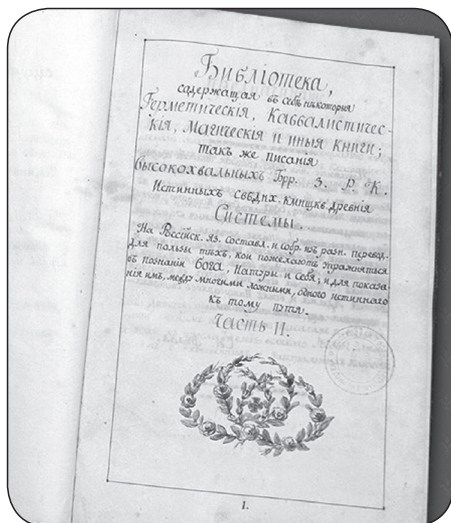 Библіотека,
содержащая въ себѣ нѣкоторыя
Герметическія, Каббалистичес-
кія, Магическія и иныя книги;
такъ же писанія
высокохвальныхъ Брр. З. Р. К.
Истинныхъ свбднх. кмнщкв. древнія
Системы.
На Россійск. яз. составл. и собр. изъ разн. перевод.
для пользы тѣхъ, кои пожелаютъ упражняться
въ познаніи Бога, Натуры и себя; и для показа-
нія имъ, между многими ложными, одного истиннаго
къ тому пути.
Часть II.
1.